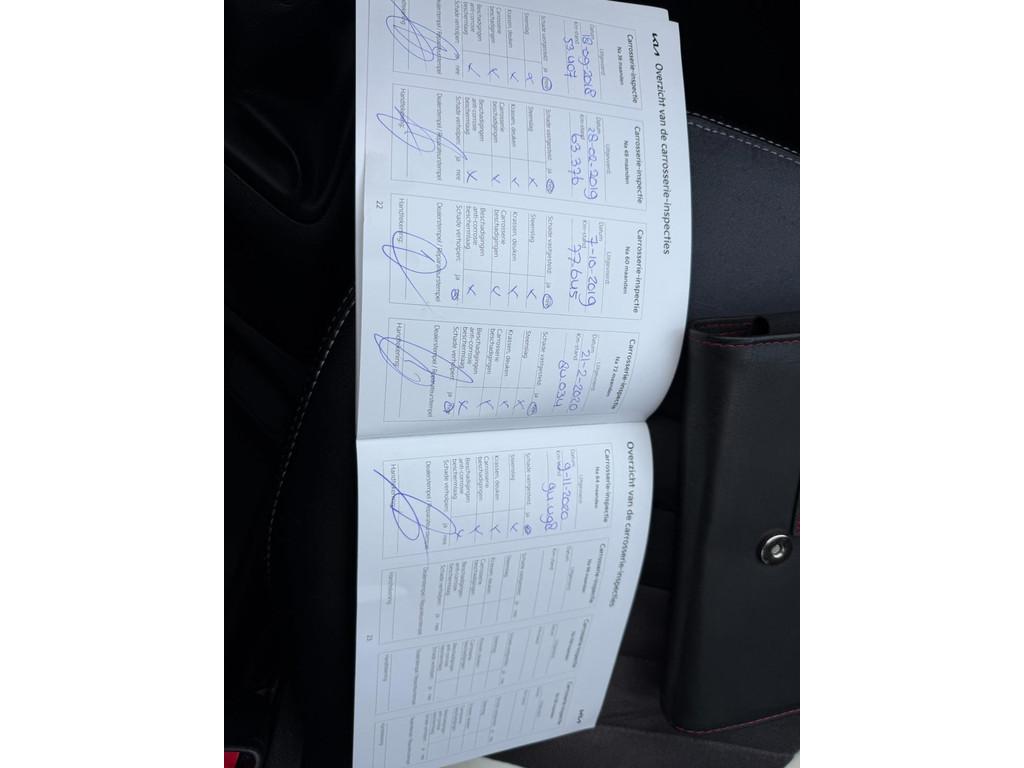 KIA Overzicht van de carrosserie-inspecties
Carrosserie-inspectie
Na 36 maanden
Uitgevoerd:
Datum 18-09-2018
Km-stand 53.407
Schade vastgesteld: ja nee
Steenslag x
Krassen, deuken x
Carrosserie
beschadigingen x
Beschadigingen
anti-corrosie
beschermlaag x
Schade verholpen: ja nee
Dealerstempel / Reparateurstempel
Handtekening:
Carrosserie-inspectie
Na 48 maanden
Uitgevoerd:
Datum 28-02-2019
Km-stand 63.376
Schade vastgesteld: ja nee
Steenslag x
Krassen, deuken x
Carrosserie
beschadigingen x
Beschadigingen
anti-corrosie
beschermlaag x
Schade verholpen: ja nee
Dealerstempel / Reparateurstempel
Handtekening:
Carrosserie-inspectie
Na 60 maanden
Uitgevoerd:
Datum 7-10-2019
Km-stand 77.645
Schade vastgesteld: ja nee
Steenslag x
Krassen, deuken x
Carrosserie
beschadigingen x
Beschadigingen
anti-corrosie
beschermlaag x
Schade verholpen: ja nee
Dealerstempel / Reparateurstempel
Handtekening:
Carrosserie-inspectie
Na 72 maanden
Uitgevoerd:
Datum 21-2-2020
Km-stand 84.034
Schade vastgesteld: ja nee
Steenslag x
Krassen, deuken x
Carrosserie
beschadigingen x
Beschadigingen
anti-corrosie
beschermlaag x
Schade verholpen: ja nee
Dealerstempel / Reparateurstempel
Handtekening:
22
Overzicht van de carrosserie-inspecties KIA
Carrosserie-inspectie
Na 84 maanden
Uitgevoerd:
Datum 9-11-2020
Km-stand 94.498
Schade vastgesteld: ja nee
Steenslag x
Krassen, deuken x
Carrosserie
beschadigingen x
Beschadigingen
anti-corrosie
beschermlaag x
Schade verholpen: ja nee
Dealerstempel / Reparateurstempel
Handtekening:
Carrosserie-inspectie
Na 96 maanden
Uitgevoerd:
Datum
Km-stand
Schade vastgesteld: ja nee
Steenslag
Krassen, deuken
Carrosserie
beschadigingen
Beschadigingen
anti-corrosie
beschermlaag
Schade verholpen: ja nee
Dealerstempel / Reparateurstempel
Handtekening:
Carrosserie-inspectie
Carrosserie-inspectie
23